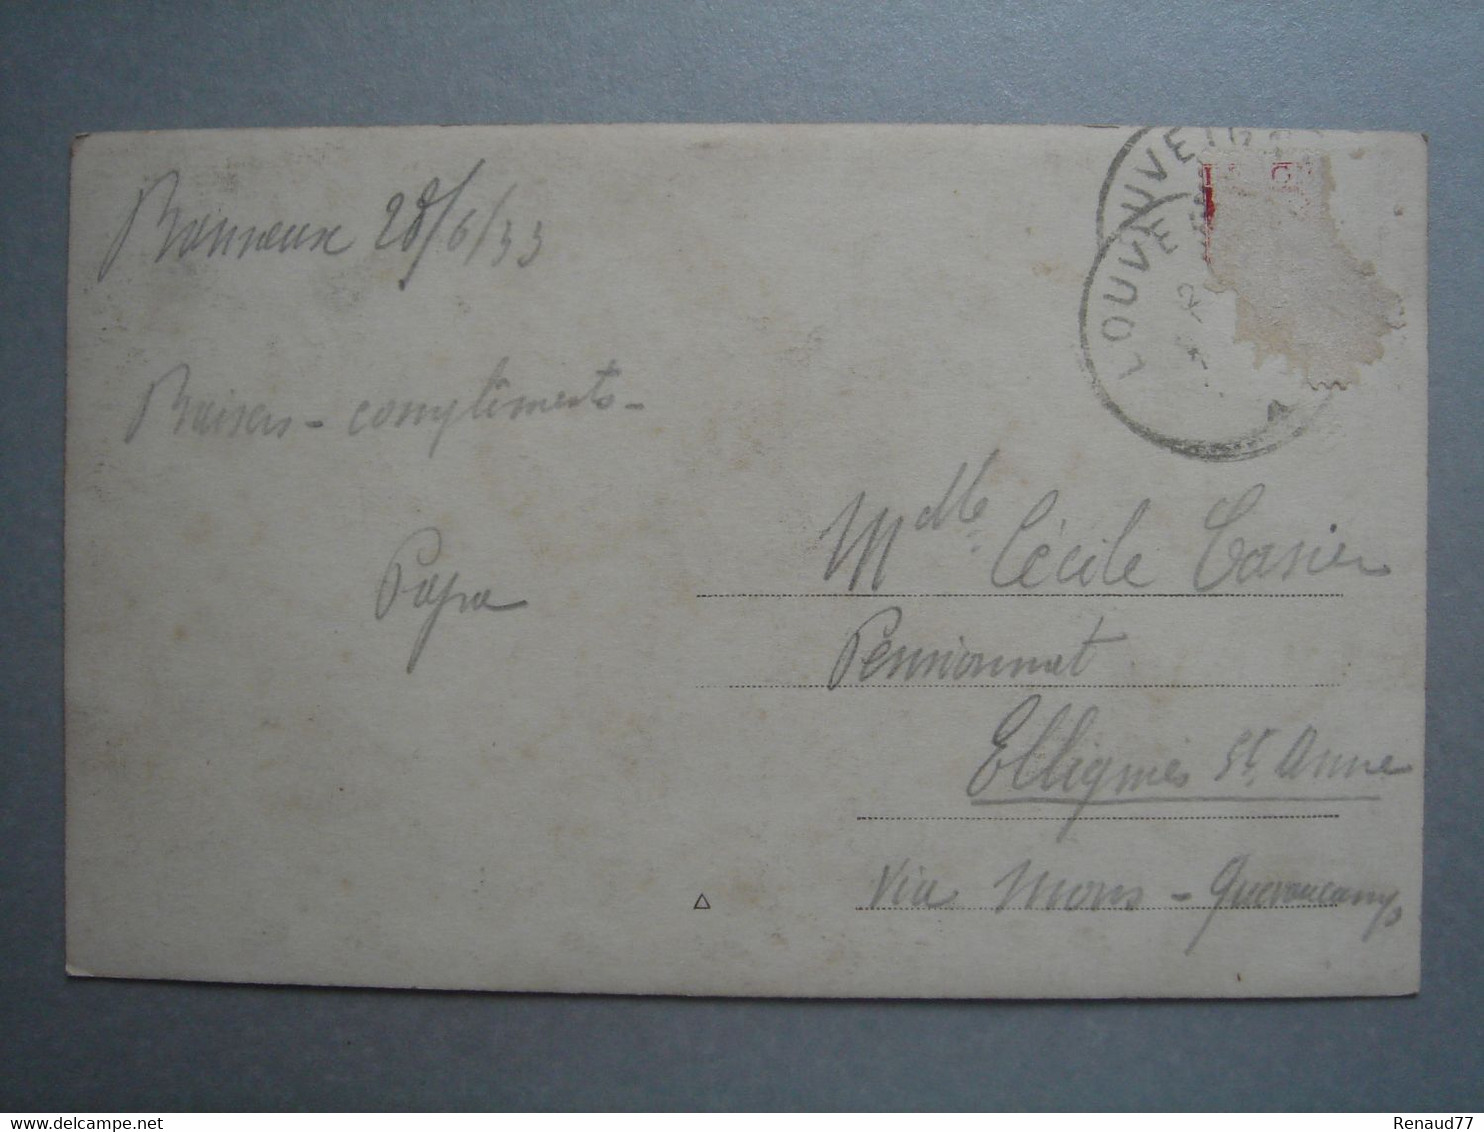 Banneux 28/6/33
Baisers - compliments -
Papa
LOUVEIG
LOUVE
Mdlle Cécile Casier
Pensionnat
Ellignies St. Anne
via Mons - Quevaucamps
www.delcampe.net
Renaud77